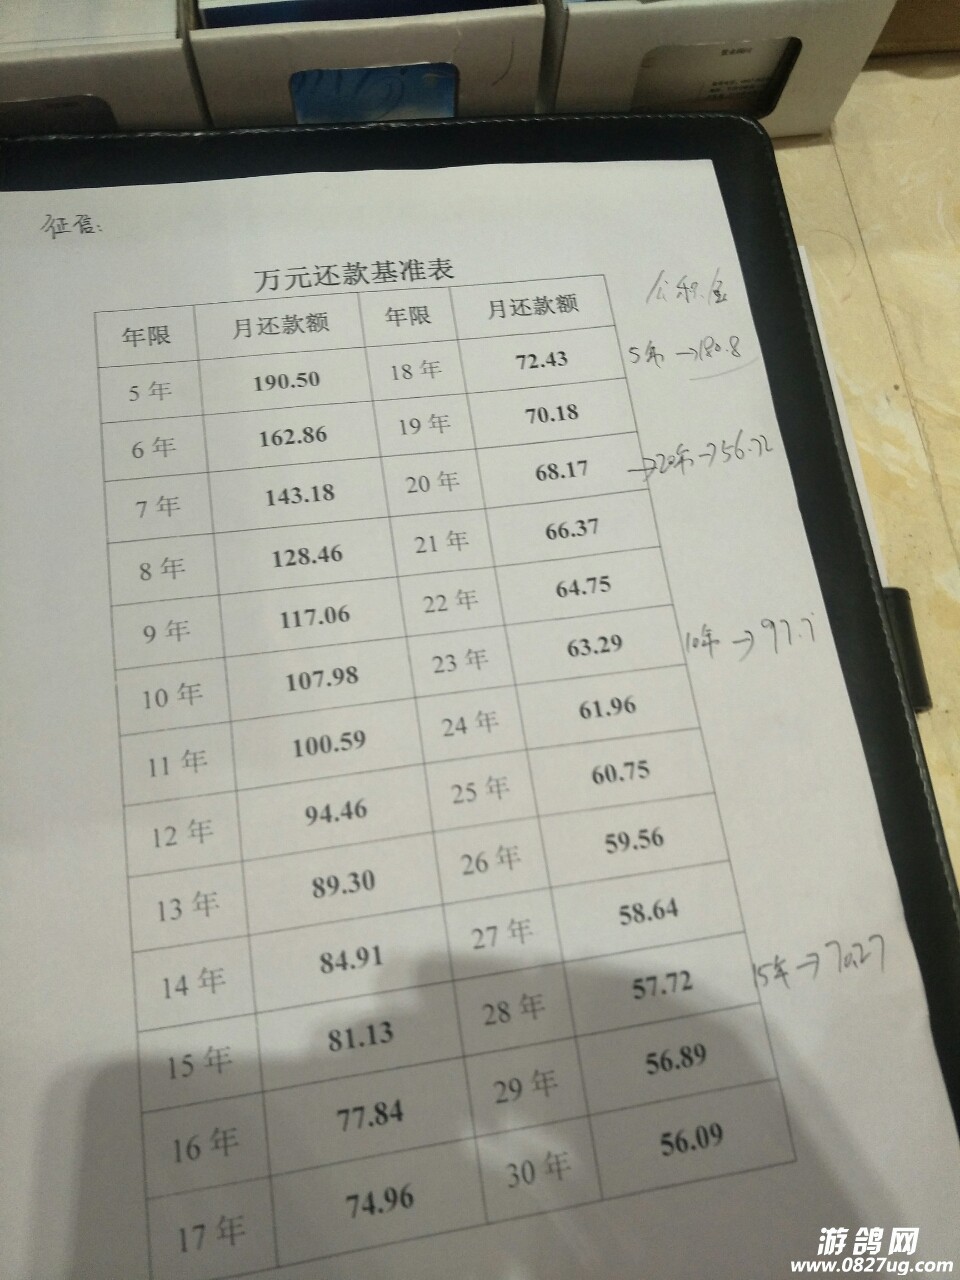 征信:
万元还款基准表
年限 月还款额 年限 月还款额
5年 190.50 18年 72.43
6年 162.86 19年 70.18
7年 143.18 20年 68.17
8年 128.46 21年 66.37
9年 117.06 22年 64.75
10年 107.98 23年 63.29
11年 100.59 24年 61.96
12年 94.46 25年 60.75
13年 89.30 26年 59.56
14年 84.91 27年 58.64
15年 81.13 28年 57.72
16年 77.84 29年 56.89
17年 74.96 30年 56.09
公积金
5年→180.8
→20年→56.72
10年→97.7
15年→70.27
游鸽网
www.0827ug.com